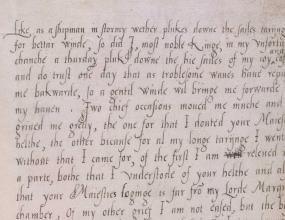 Like as a shipman in stormy wether plukes downe the sailes tarijnge
for bettar winde, so did I, most noble Kinge, in my unfortu
chanche a thurday pluk downe the hie sailes of my ioy, co
and do trust one day that as troblesome wanes have repu
me bakwarde, so a gentil winde wil bringe me forwarde
my haven. Two chief occasions moued me muche and
grived me gretly, the one for that I douted your Maiest
helthe, the other bicause for al my longe tarijnge I went
without that I came for, of the first I am releued i
a parte, bothe that I understode of your helthe and al
that your Maiesties loginge is far from my Lorde Marqu
chamber, Of my other grief I am not eased, but the be